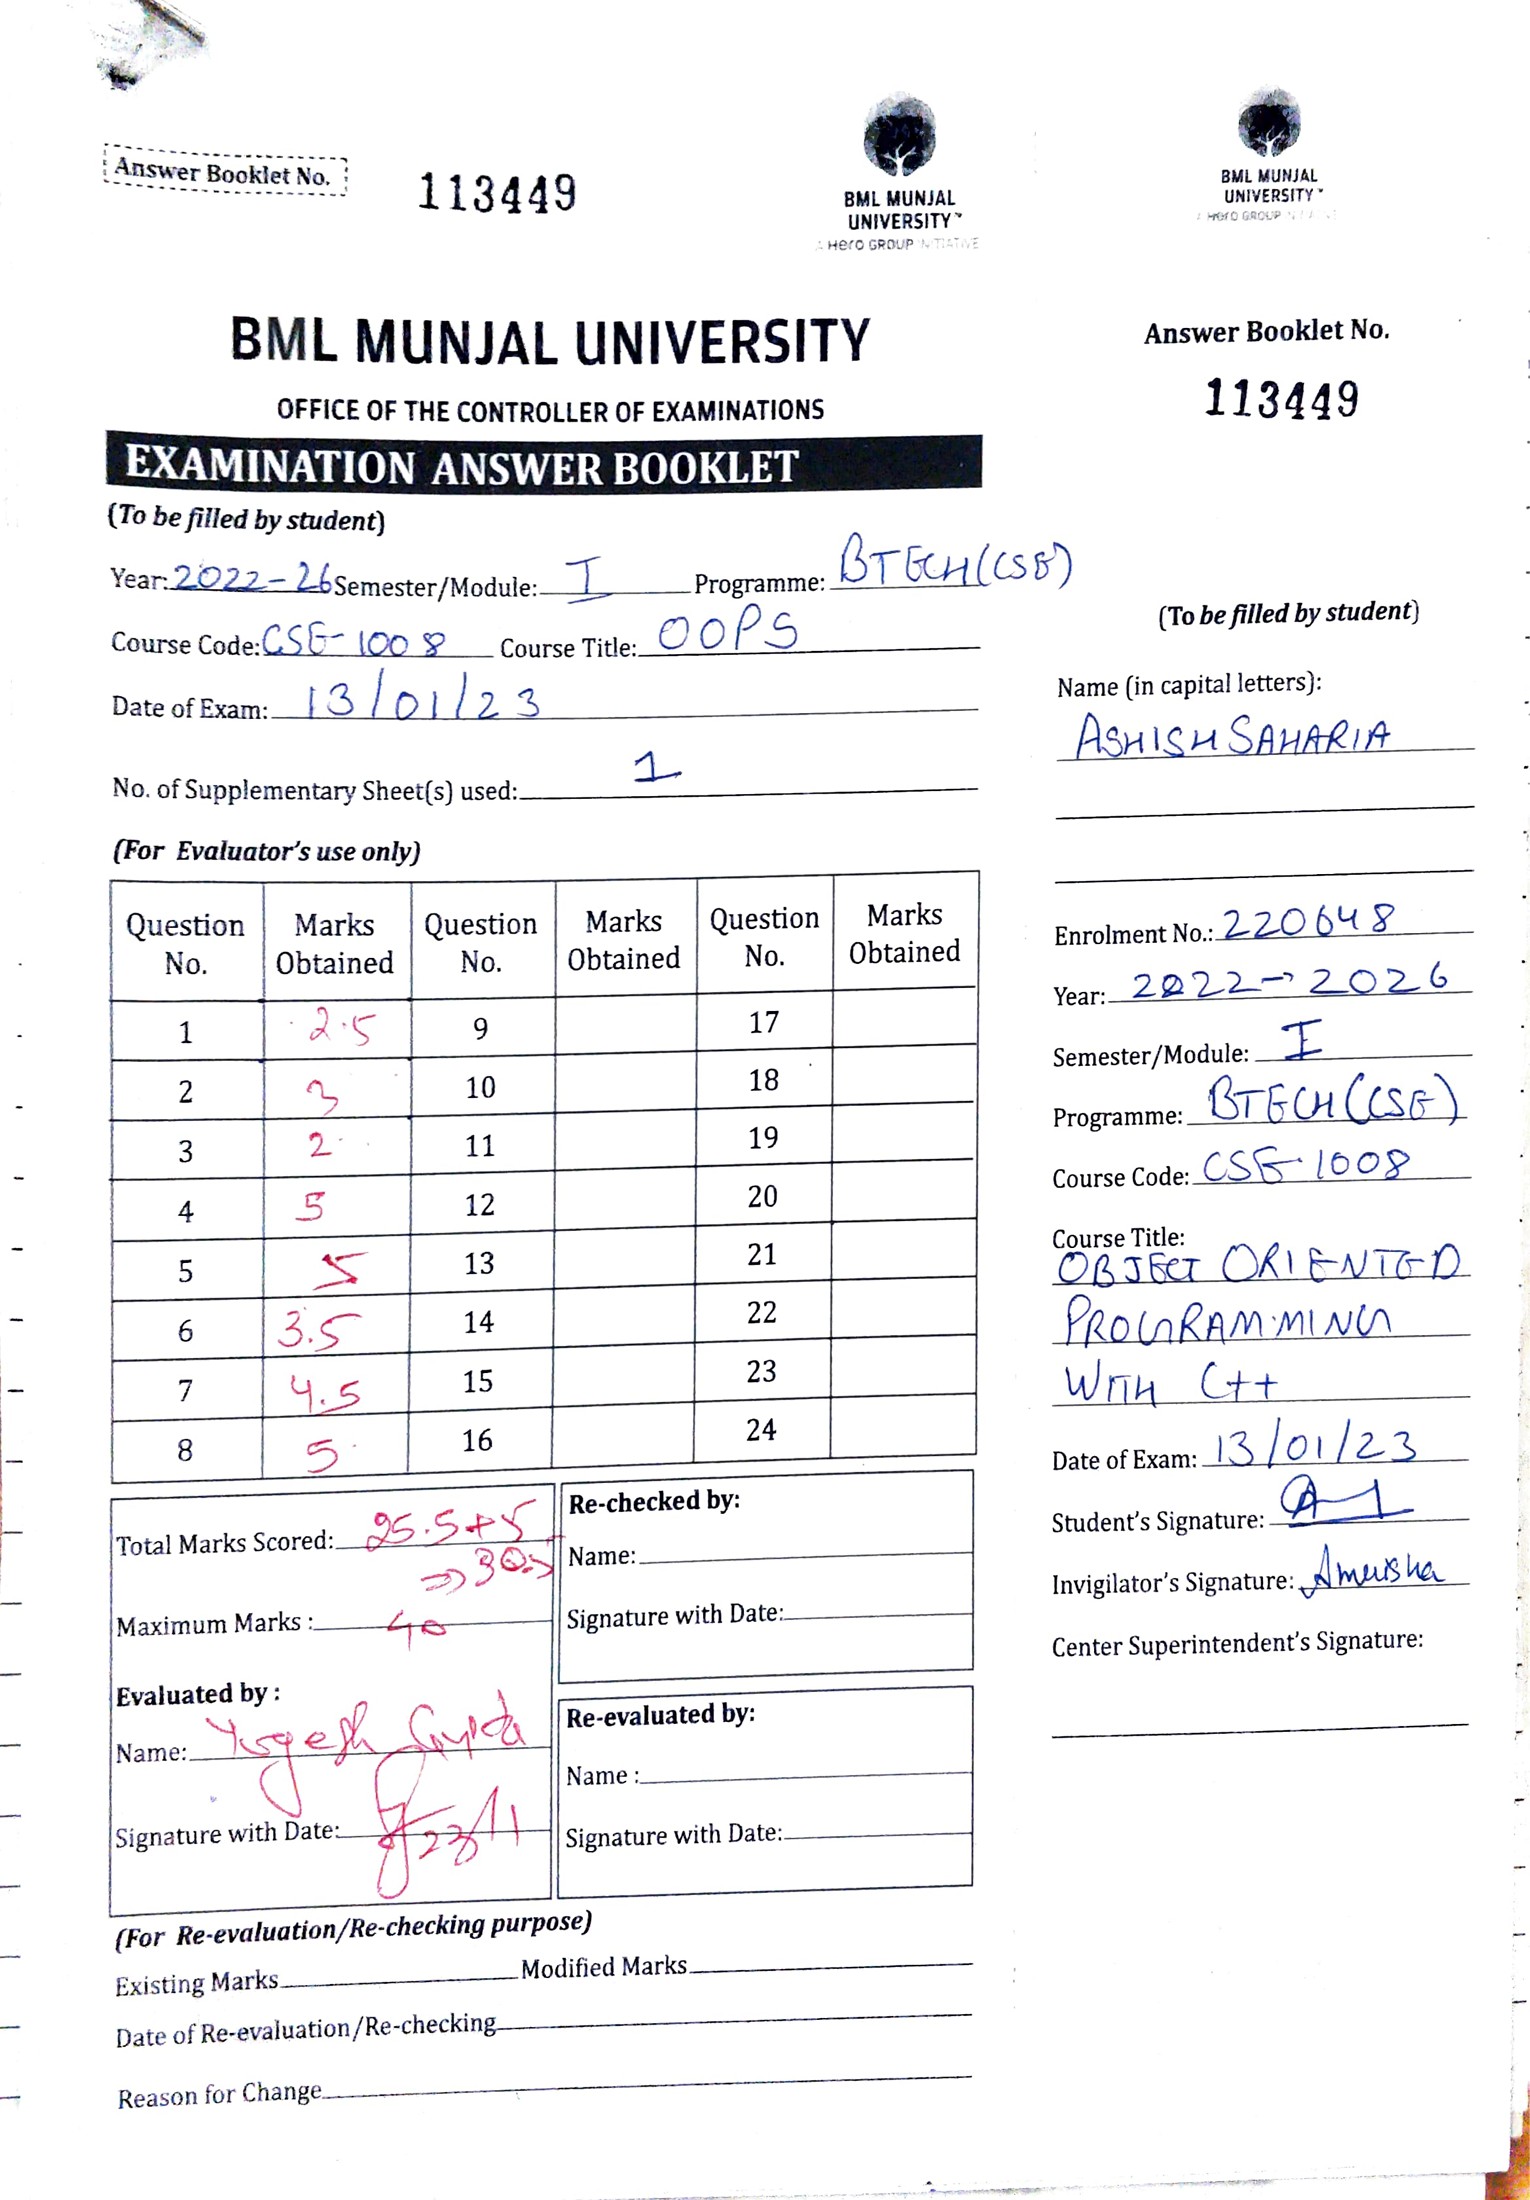 Answer Booklet No. 113449
BML MUNJAL
UNIVERSITY™
A Hero GROUP INITIATIVE
BML MUNJAL UNIVERSITY
OFFICE OF THE CONTROLLER OF EXAMINATIONS
EXAMINATION ANSWER BOOKLET
(To be filled by student)
Year: 2022-26 Semester/Module: I Programme: BTECH(CSE)
Course Code: CSE-1008 Course Title: OOPS
Date of Exam: 13/01/23
No. of Supplementary Sheet(s) used: 1
(For Evaluator's use only)
Question No. Marks Obtained Question No. Marks Obtained Question No. Marks Obtained
1 2.5 9 17
2 3 10 18
3 2 11 19
4 5 12 20
5 5 13 21
6 3.5 14 22
7 4.5 15 23
8 5 16 24
Total Marks Scored: 25.5+5
=> 30.5
Maximum Marks : 40
Evaluated by :
Name: Yogesh Gupta
Signature with Date: 23/1
Re-checked by:
Name:
Signature with Date:
Re-evaluated by:
Name :
Signature with Date:
(For Re-evaluation/Re-checking purpose)
Existing Marks Modified Marks
Date of Re-evaluation/Re-checking
Reason for Change
BML MUNJAL
UNIVERSITY™
A Hero GROUP INITIATIVE
Answer Booklet No.
113449
(To be filled by student)
Name (in capital letters):
ASHISH SAHARIA
Enrolment No.: 220648
Year: 2022-2026
Semester/Module: I
Programme: BTECH(CSE)
Course Code: CSE-1008
Course Title:
OBJECT ORIENTED
PROGRAMMING
WITH C++
Date of Exam: 13/01/23
Student's Signature:
Invigilator's Signature:
Center Superintendent's Signature: